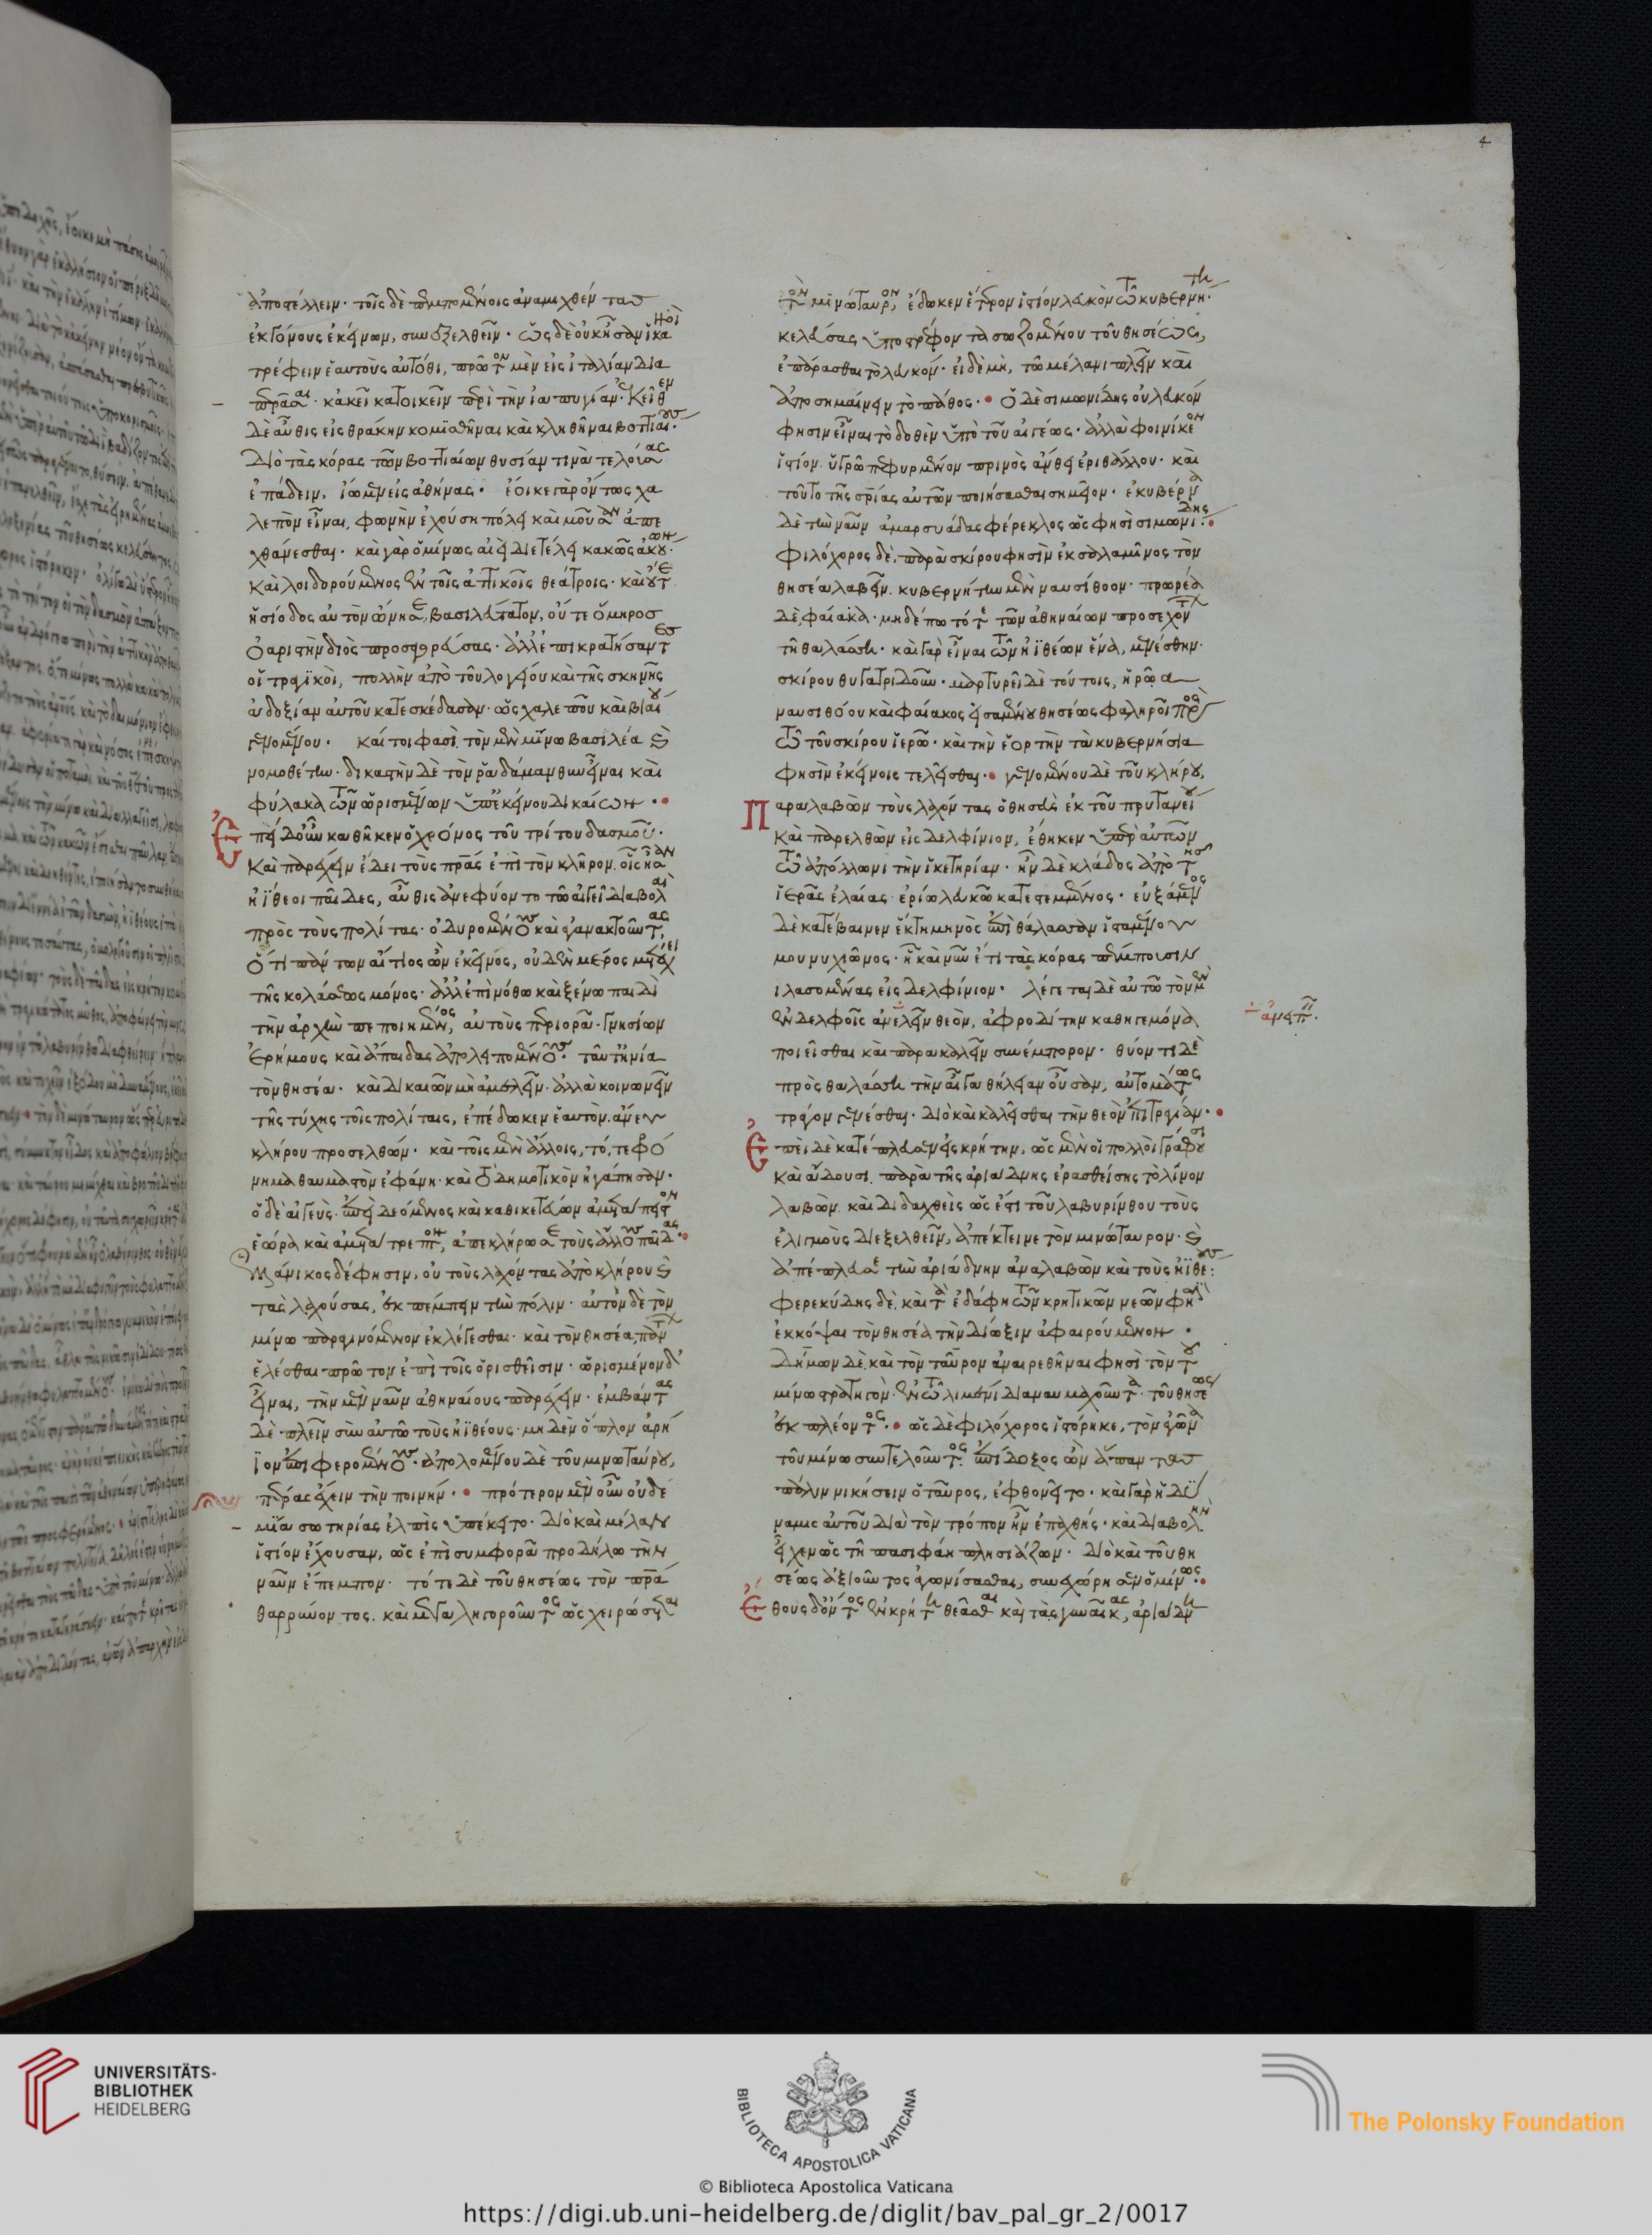 4
ἀποστέλλειν· τοῖς δὲ πεμπομένοις ἀναμιχθέντας
ἐκγόνους ἐκείνων, συνεξελθεῖν· ὡς δὲ οὐκ ἦσαν ἱκανοὶ
τρέφειν ἑαυτοὺς αὐτόθι, πρῶτον μὲν εἰς ἰταλίαν δια
περᾶσαι· κἀκεῖ κατοικεῖν περὶ τὴν ἰαπυγίαν· ἐκεῖθεν
δὲ αὖθις εἰς θράκην κομισθῆναι καὶ κληθῆναι βοττιαίους·
διὸ τὰς κόρας τῶν βοττιαίων θυσίαν τινὰ τελούσας
ἐπάδειν, ἴωμεν εἰς ἀθήνας· ἔοικε γὰρ ὄντως χα
λεπὸν εἶναι, φωνὴν ἐχούσῃ πόλει καὶ μοῦσαν ἀπε
χθάνεσθαι· καὶ γὰρ ὁ μίνως ἀεὶ διετέλει κακῶς ἀκούων·
καὶ λοιδορούμενος ἐν τοῖς ἀττικοῖς θεάτροις· καὶ οὔτε
ἡσίοδος αὐτὸν ὤνησε, βασιλεύτατον, οὔτε ὅμηρος
ὀαριστὴν διὸς προσαγορεύσας· ἀλλ' ἐπικρατήσαντες
οἱ τραγικοὶ, πολλὴν ἀπὸ τοῦ λογείου καὶ τῆς σκηνῆς
ἀδοξίαν αὐτοῦ κατεσκέδασαν· ὡς χαλεποῦ καὶ βιαίου
γενομένου· καίτοι φασὶ τὸν μὲν μίνω βασιλέα καὶ
νομοθέτην· δικαστὴν δὲ τὸν ῥαδάμανθυν εἶναι καὶ
φύλακα τῶν ὡρισμένων ὑπ' ἐκείνου δικαίων·
Ἐπεὶ δ' οὖν καθῆκεν ὁ χρόνος τοῦ τρίτου δασμοῦ·
καὶ παρέχειν ἔδει τοὺς πατέρας ἐπὶ τὸν κλῆρον, οἷς ἦσαν
ἠΐθεοι παῖδες, αὖθις ἀνεφύοντο τῶ αἰγεῖ διαβολαὶ
πρὸς τοὺς πολίτας· ὀδυρομένους καὶ ἀγανακτοῦντας,
ὅτι πάντων αἴτιος ὢν ἐκεῖνος, οὐδὲν μέρος μετέχει
τῆς κολάσεως μόνος· ἀλλ' ἐπὶ νόθω καὶ ξένω παιδὶ
τὴν ἀρχὴν πεποιημένος, αὐτοὺς περιορᾶ· γνησίων
ἐρήμους καὶ ἄπαιδας ἀπολειπομένους· ταῦτ' ἠνία
τὸν θησέα· καὶ δικαιῶν μὴ ἀμελεῖν· ἀλλὰ κοινωνεῖν
τῆς τύχης τοῖς πολίταις, ἐπέδωκεν ἑαυτὸν ἄνευ
κλήρου προσελθών· καὶ τοῖς μὲν ἄλλοις, τό, τε φρό
νημα θαυμαστὸν ἐφάνη· καὶ τὸ δημοτικὸν ἠγάπησαν·
ὁ δὲ αἰγεὺς· ἐπεὶ δεόμενος καὶ καθικετεύων ἀμετάπειστον
ἑώρα καὶ ἀμετάτρεπτον, ἀπεκλήρωσε τοὺς ἄλλους παῖδας·
Ἑλλάνικος δέ φησιν, οὐ τοὺς λαχόντας ἀπὸ κλήρου καὶ
τὰς λαχούσας, ἐκπέμπειν τὴν πόλιν· αὐτὸν δὲ τὸν
μίνω παραγινόμενον ἐκλέγεσθαι· καὶ τὸν θησέα, πάντων
ἑλέσθαι πρῶτον ἐπὶ τοῖς ὁρισθεῖσιν· ὡρισμένον δ'
εἶναι, τὴν μὲν ναῦν ἀθηναίους παρέχειν· ἐμβάντας
δὲ πλεῖν σὺν αὐτῶ τοὺς ἠϊθέους· μηδὲν ὅπλον ἀρή
ϊον ἐπιφερομένους· ἀπολομένου δὲ τοῦ μινωταύρου,
πέρας ἔχειν τὴν ποινήν· πρότερον μὲν οὖν οὐδε
μία σωτηρίας ἐλπὶς ὑπέκειτο· διὸ καὶ μέλαν
ἱστίον ἔχουσαν, ὡς ἐπὶ συμφορᾶ προδήλω τὴν
ναῦν ἔπεμπον· τότε δὲ τοῦ θησέως τὸν πατέρα
θαρρύνοντος· καὶ μεγαληγοροῦντος ὡς χειρώσεται
τὸν μινώταυρον, ἔδωκεν ἕτερον ἱστίον λευκὸν τῶ κυβερνήτη·
κελεύσας ὑποστρέφοντα σωζομένου τοῦ θησέως,
ἐπάρασθαι τὸ λευκόν· εἰ δὲ μὴ, τῶ μέλανι πλεῖν καὶ
ἀποσημαίνειν τὸ πάθος· ὁ δὲ σιμωνίδης οὐ λευκόν
φησιν εἶναι τὸ δοθὲν ὑπὸ τοῦ αἰγέως· ἀλλὰ φοινίκεον
ἱστίον ὑγρῶ πεφυρμένον πρινὸς ἄνθει ἐριθάλλου· καὶ
τοῦτο τῆς σωτηρίας αὐτῶν ποιήσασθαι σημεῖον· ἐκυβέρνα
δὲ τὴν ναῦν ἀμαρσυάδας φέρεκλος ὥς φησὶ σιμωνίδης·
φιλόχορος δὲ, παρὰ σκίρου φησὶν ἐκ σαλαμῖνος τὸν
θησέα λαβεῖν κυβερνήτην μὲν ναυσίθοον· πρωρέα
δὲ, φαίακα· μηδέπω τότε τῶν ἀθηναίων προσεχόντων
τῆ θαλάσση· καὶ γὰρ εἶναι τῶν ἠϊθέων ἕνα, μενέσθην·
σκίρου θυγατριδοῦν· μαρτυρεῖ δὲ τούτοις, ἡρῶα
ναυσιθόου καὶ φαίακος εἱσαμένου θησέως φαληροῖ πρὸς
τῶ τοῦ σκίρου ἱερῶ· καὶ τὴν ἑορτὴν τὰ κυβερνήσια
φησὶν ἐκείνοις τελεῖσθαι· γενομένου δὲ τοῦ κλήρου,
Παραλαβὼν τοὺς λαχόντας ὁ θησεὺς ἐκ τοῦ πρυτανείου
καὶ παρελθὼν εἰς δελφίνιον, ἔθηκεν ὑπὲρ αὐτῶν
τῶ ἀπόλλωνι τὴν ἱκετηρίαν· ἦν δὲ κλάδος ἀπὸ τῆς
ἱερᾶς ἐλαίας ἐρίω λευκῶ κατεστεμμένος· εὐξάμενος
δὲ κατέβαινεν ἕκτη μηνὸς ἐπὶ θάλασσαν ἱσταμένου
μουνυχιῶνος· ἧ καὶ νῦν ἔτι τὰς κόρας πέμπουσιν
ἱλασομένας εἰς δελφίνιον· λέγεται δὲ αὐτῶ τὸν μὲν
ἐν δελφοῖς ἀνελεῖν θεὸν, ἀφροδίτην καθηγεμόνα
ἀνεῖπεν·
ποιεῖσθαι καὶ παρακαλεῖν συνέμπορον· θύοντι δὲ
πρὸς θαλάσση τὴν αἶγα θήλειαν οὖσαν, αὐτομάτως
τράγον γενέσθαι· διὸ καὶ καλεῖσθαι τὴν θεὸν ἐπιτραγίαν·
Ἐπεὶ δὲ κατέπλευσεν εἰς κρήτην, ὡς μὲν οἱ πολλοὶ γράφουσι
καὶ ἄδουσι παρὰ τῆς ἀριάδνης ἐρασθείσης τὸ λίνον
λαβὼν καὶ διδαχθεὶς ὡς ἔστι τοῦ λαβυρίνθου τοὺς
ἑλιγμοὺς διεξελθεῖν, ἀπέκτεινε τὸν μινώταυρον· καὶ
ἀπέπλευσε τὴν ἀριάδνην ἀναλαβὼν καὶ τοὺς ἠϊθέους:
φερεκύδης δὲ, καὶ τὰ ἐδάφη τῶν κρητικῶν νεῶν φησὶ
ἐκκόψαι τὸν θησέα τὴν δίωξιν ἀφαιρούμενον·
Δήμων δὲ, καὶ τὸν ταῦρον ἀναιρεθῆναι φησὶ τὸν τοῦ
μίνω στρατηγὸν· ἐν τῶ λιμένι διαναυμαχοῦντα· τοῦ θησέως
ἐκπλέοντος· ὡς δὲ φιλόχορος ἱστόρηκε, τὸν ἀγῶνα
τοῦ μίνω συντελοῦντος· ἐπίδοξος ὢν ἅπαντας
πάλιν νικήσειν ὁ ταῦρος, ἐφθονεῖτο· καὶ γὰρ ἡ δύ
ναμις αὐτοῦ διὰ τὸν τρόπον ἦν ἐπαχθής· καὶ διαβολὴν
εἶχεν ὡς τῆ πασιφάη πλησιάζων· διὸ καὶ τοῦ θη
σέως ἀξιοῦντος ἀγωνίσασθαι, συνεχώρησεν ὁ μίνως·
Ἔθους δ' ὄντος ἐν κρήτη θεᾶσθαι καὶ τὰς γυναῖκας, ἀριάδνη
UNIVERSITÄTS-
BIBLIOTHEK
HEIDELBERG
BIBLIOTECA APOSTOLICA VATICANA
The Polonsky Foundation
© Biblioteca Apostolica Vaticana
https://digi.ub.uni-heidelberg.de/diglit/bav_pal_gr_2/0017